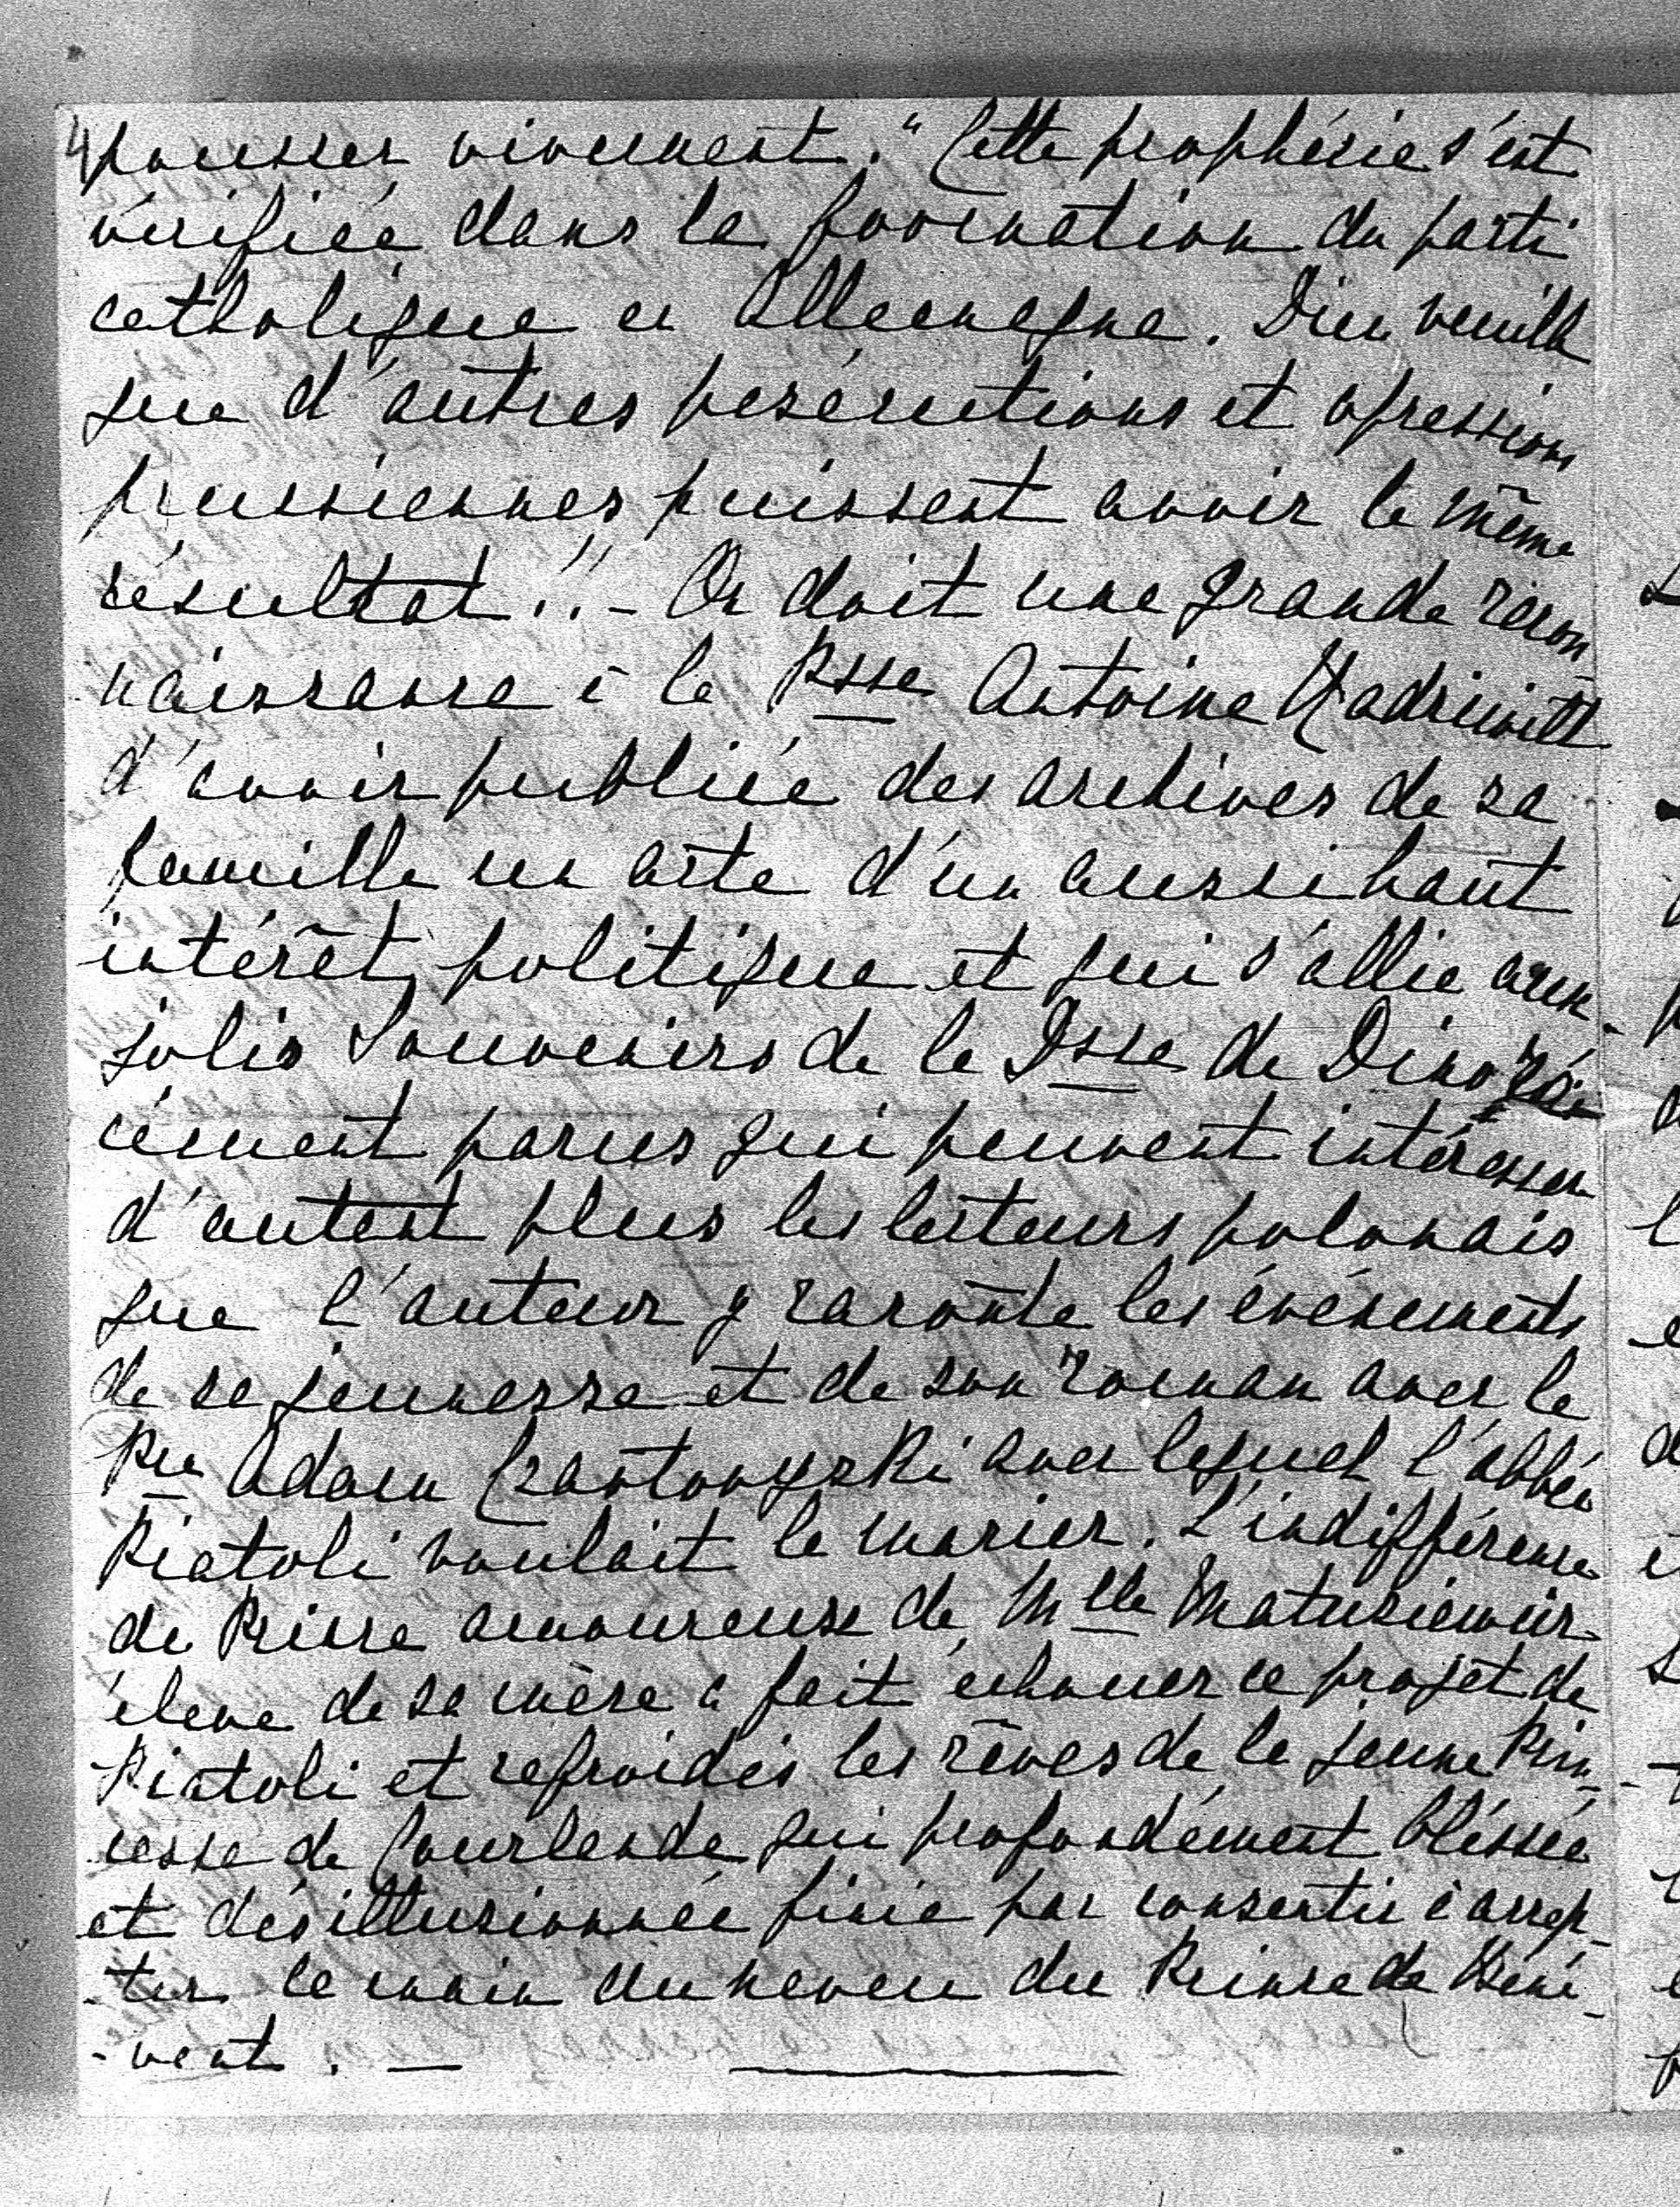 4 pousser vivement." Cette prophécie s'est
vérifiée dans la formation du parti
catholique en Allemagne. Dieu veuille
que d'autres persécutions et opressions
prussiennes puissent avoir le même
résultat!! - On doit une grande recon
naissance à la Psse Antoine Radziwill
d'avoir publiée des archives de sa
famille un acte d'un aussi haut
intérêt politique et qui s'allie aux
jolis Souvenirs de la Dsse de Dino ré
cément parus qui peuvent intéresser
d'autant plus les lecteurs polonais
que l'auteur y raconte les événements
de sa jeunesse et de son roman avec le
Pce Adam Czartoryski avec lequel l'abbé
Piatoli voulait la marier. L'indifférence
du Prince amoureux de Mlle Matusiewicz
élève de sa mère a fait échouer ce projet de
Piatoli et refroidis les rêves de la jeune Prin-
cesse de Courlande qui profondément bléssée
et désillusionnée finie par consentir à accep-
-ter la main du neveu du Prince de Béné-
-vent. —